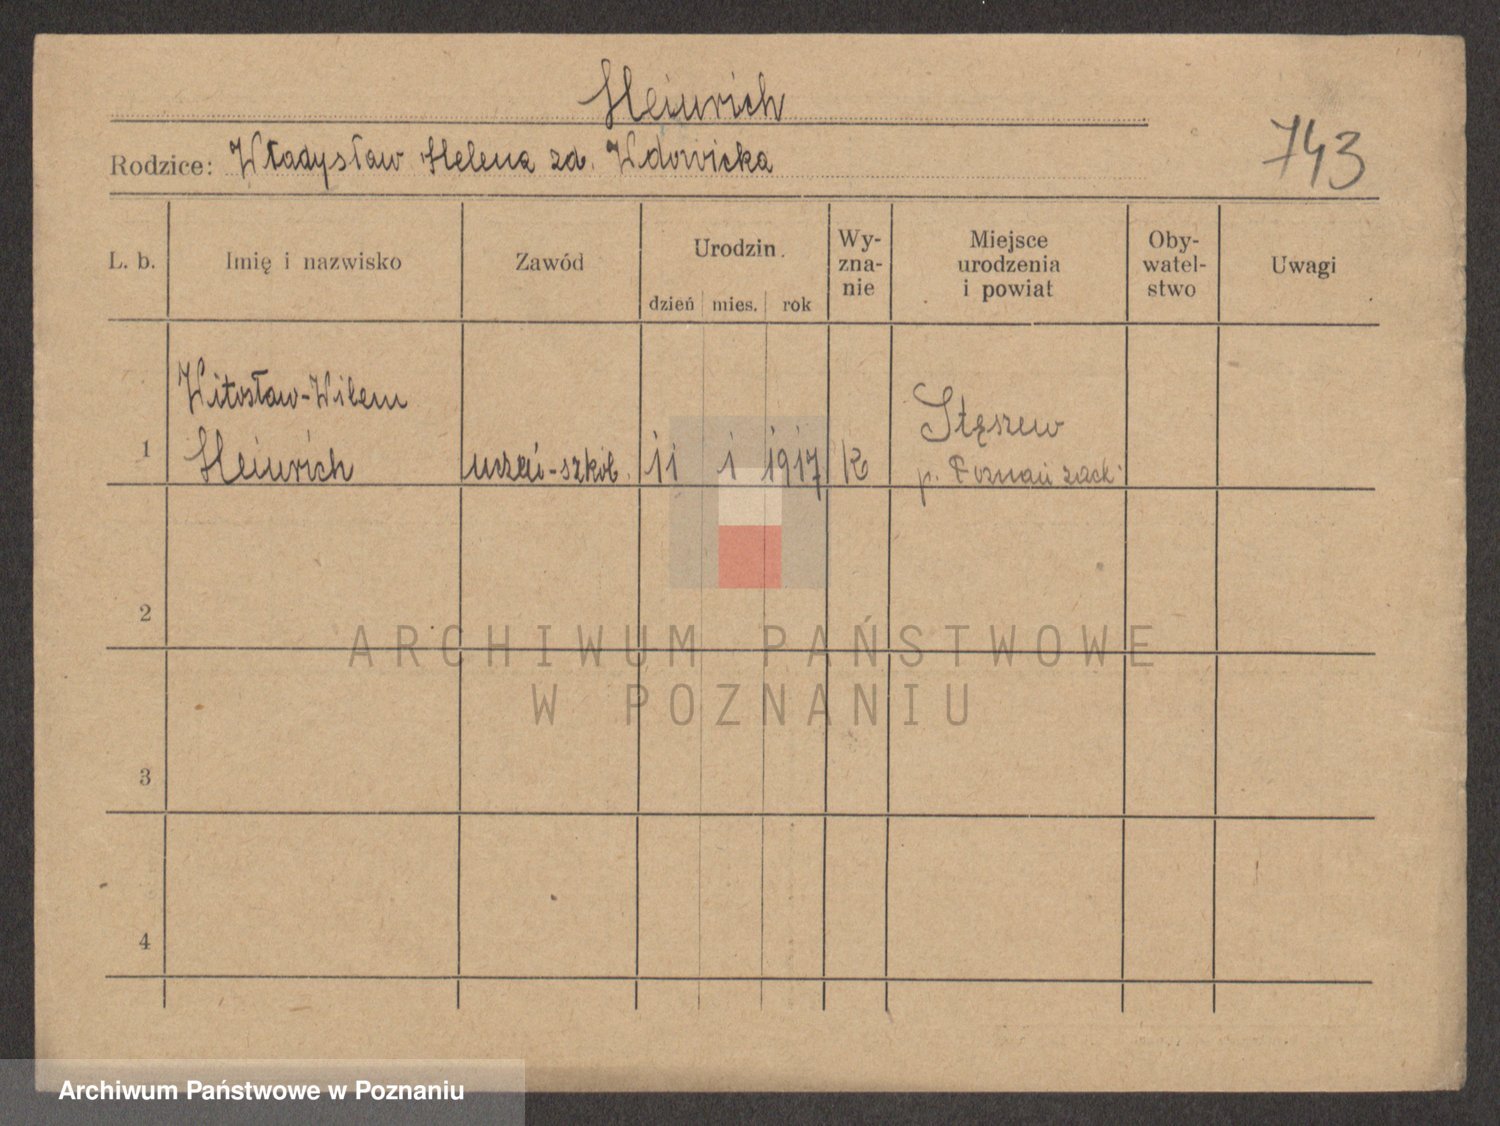 Heinrich
743
Rodzice: Władysław Helena zd. Wdowicka
L. b. Imię i nazwisko Zawód Urodzin. dzień mies. rok Wy-zna-nie Miejsce urodzenia i powiat Oby-watel-stwo Uwagi
Witosław-Wilem
Stęszew
1 Heinrich uczeń-szkól. 11 1 1917 rk p. Poznań zach.
2
ARCHIWUM PAŃSTWOWE
W POZNANIU
3
4
Archiwum Państwowe w Poznaniu